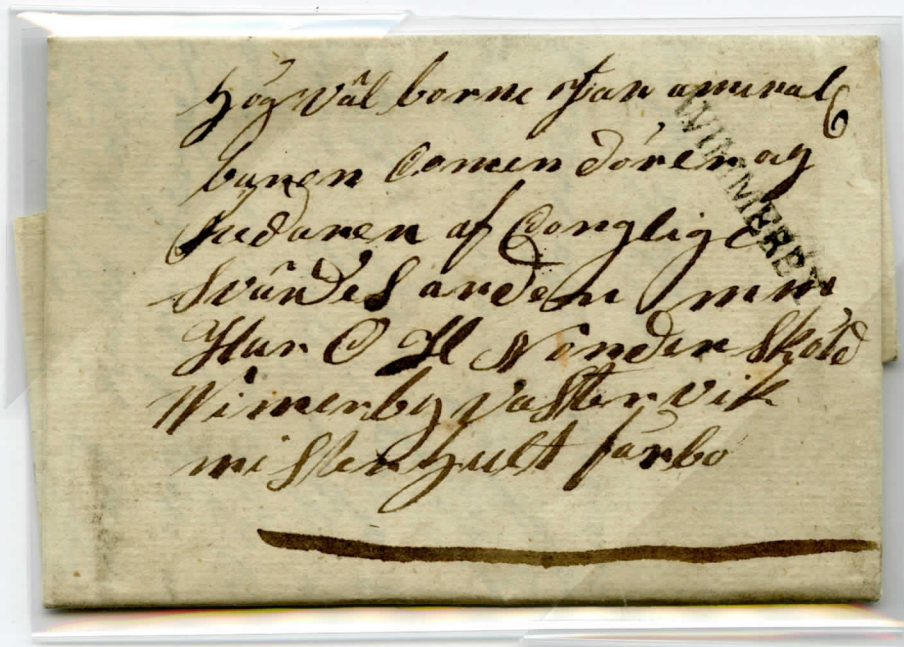 Hög Väl borne Han amiral
baren Comen dören ag
Ridaren af Conglige
Svärdes arden mm
Har C H Nordenskold
Wimerby Vastervik
misterhult färbo
WIMMERBY